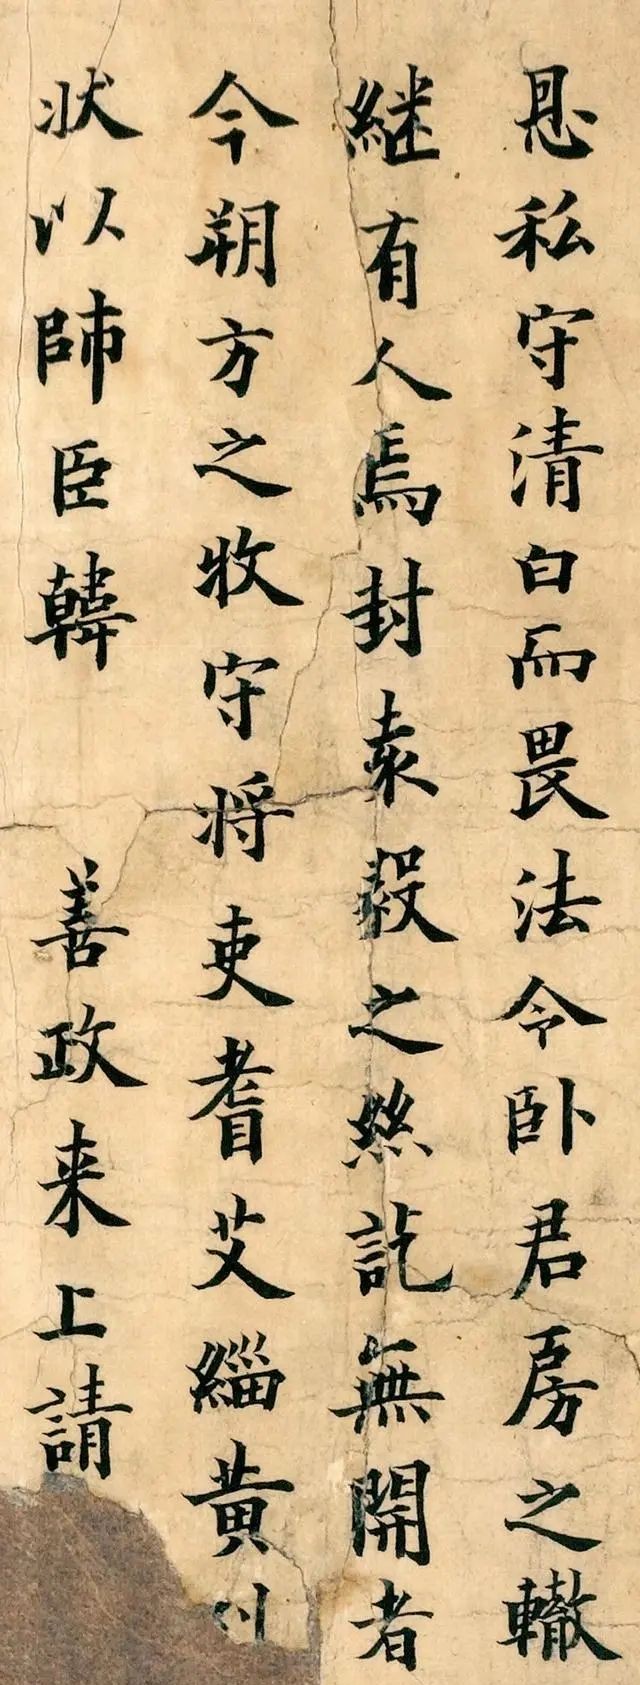 恩私守清白而畏法令卧君房之轍
継有人焉封袁毅之絲訖無開者
今朔方之牧守将吏耆艾緇黄
状以帥臣韓 善政来上請